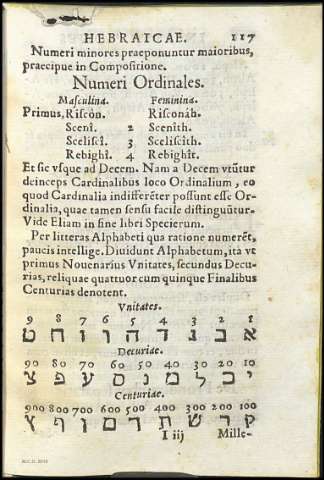 HEBRAICAE. 117
Numeri minores praeponuntur maioribus,
praecipue in Compositione.
Numeri Ordinales.
Masculina. Feminina.
Primus, Riscòn. Risconàh.
Scenì. 2 Scenìth.
Sceliscì. 3 Scelìscìth.
Rebighì. 4 Rebighìt.
Et sic vsque ad Decem. Nam a Decem vtũtur
deinceps Cardinalibus loco Ordinalium, eo
quod Cardinalia indifferẽter possunt esse Or-
dinalia, quae tamen sensu facile distinguũtur.
Vide Eliam in fine libri Specierum.
Per litteras Alphabeti qua ratione numerẽt,
paucis intellige. Diuidunt Alphabetum, ità vt
primus Nouenarius Vnitates, secundus Decu-
rias, reliquae quattuor cum quinque Finalibus
Centurias denotent.
Vnitates.
9 8 7 6 5 4 3 2 1
א ב ג ד ה ו ז ח ט
Decuriae.
90 80 70 60 50 40 30 20 10
י כ ל מ נ ס ע פ צ
Centuriae.
900 800 700 600 500 400 300 200 100
ק ר ש ת ך ם ן ף ץ
I iij Mille-